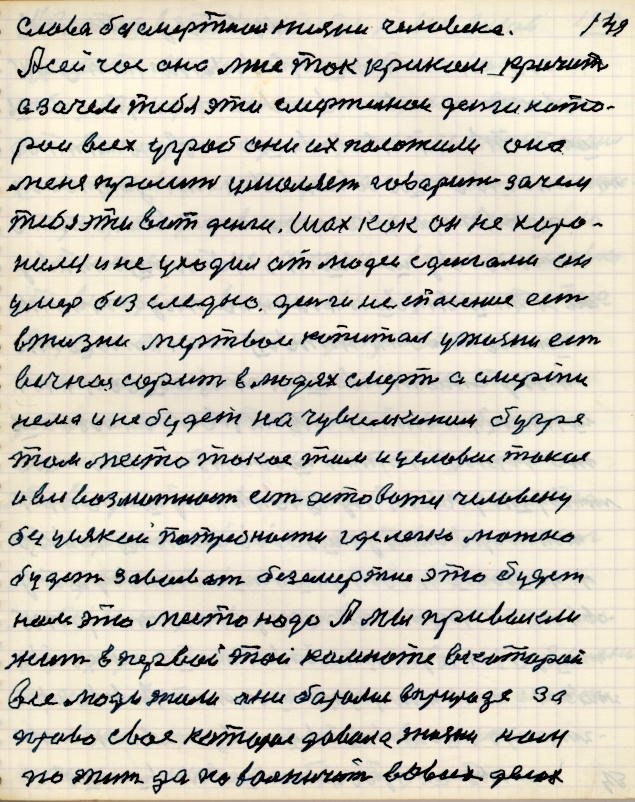 слова бысмертная жизни человека. 139
А сейчас она мне ток криком кричит
а зачем тебя эти смертиная денги кото-
рои всех угроб они их положили она
меня просит умаляет говарит зачем
тибя эти вот денги. Шах как он не хоро-
нилц и не уходил от людеи сденгами он
умер без следно. денги не спасение ест
в жизни мертваи капитал у жизни ест
вечноя сорит в людях смерт а смерти
нема и не будет на чувилкиним бугре
там место такое там и условие такое
и ви возможност ест астоваты человеку
бы уякой патребности где легко можно
будет завоиват безсмертие это будет
нам это место надо А мы привыкли
жит в первой тои комноте в которой
все люди жили они баролис в природе за
право свое которое давала жизни нам
по жит да поваличит в овоих делох